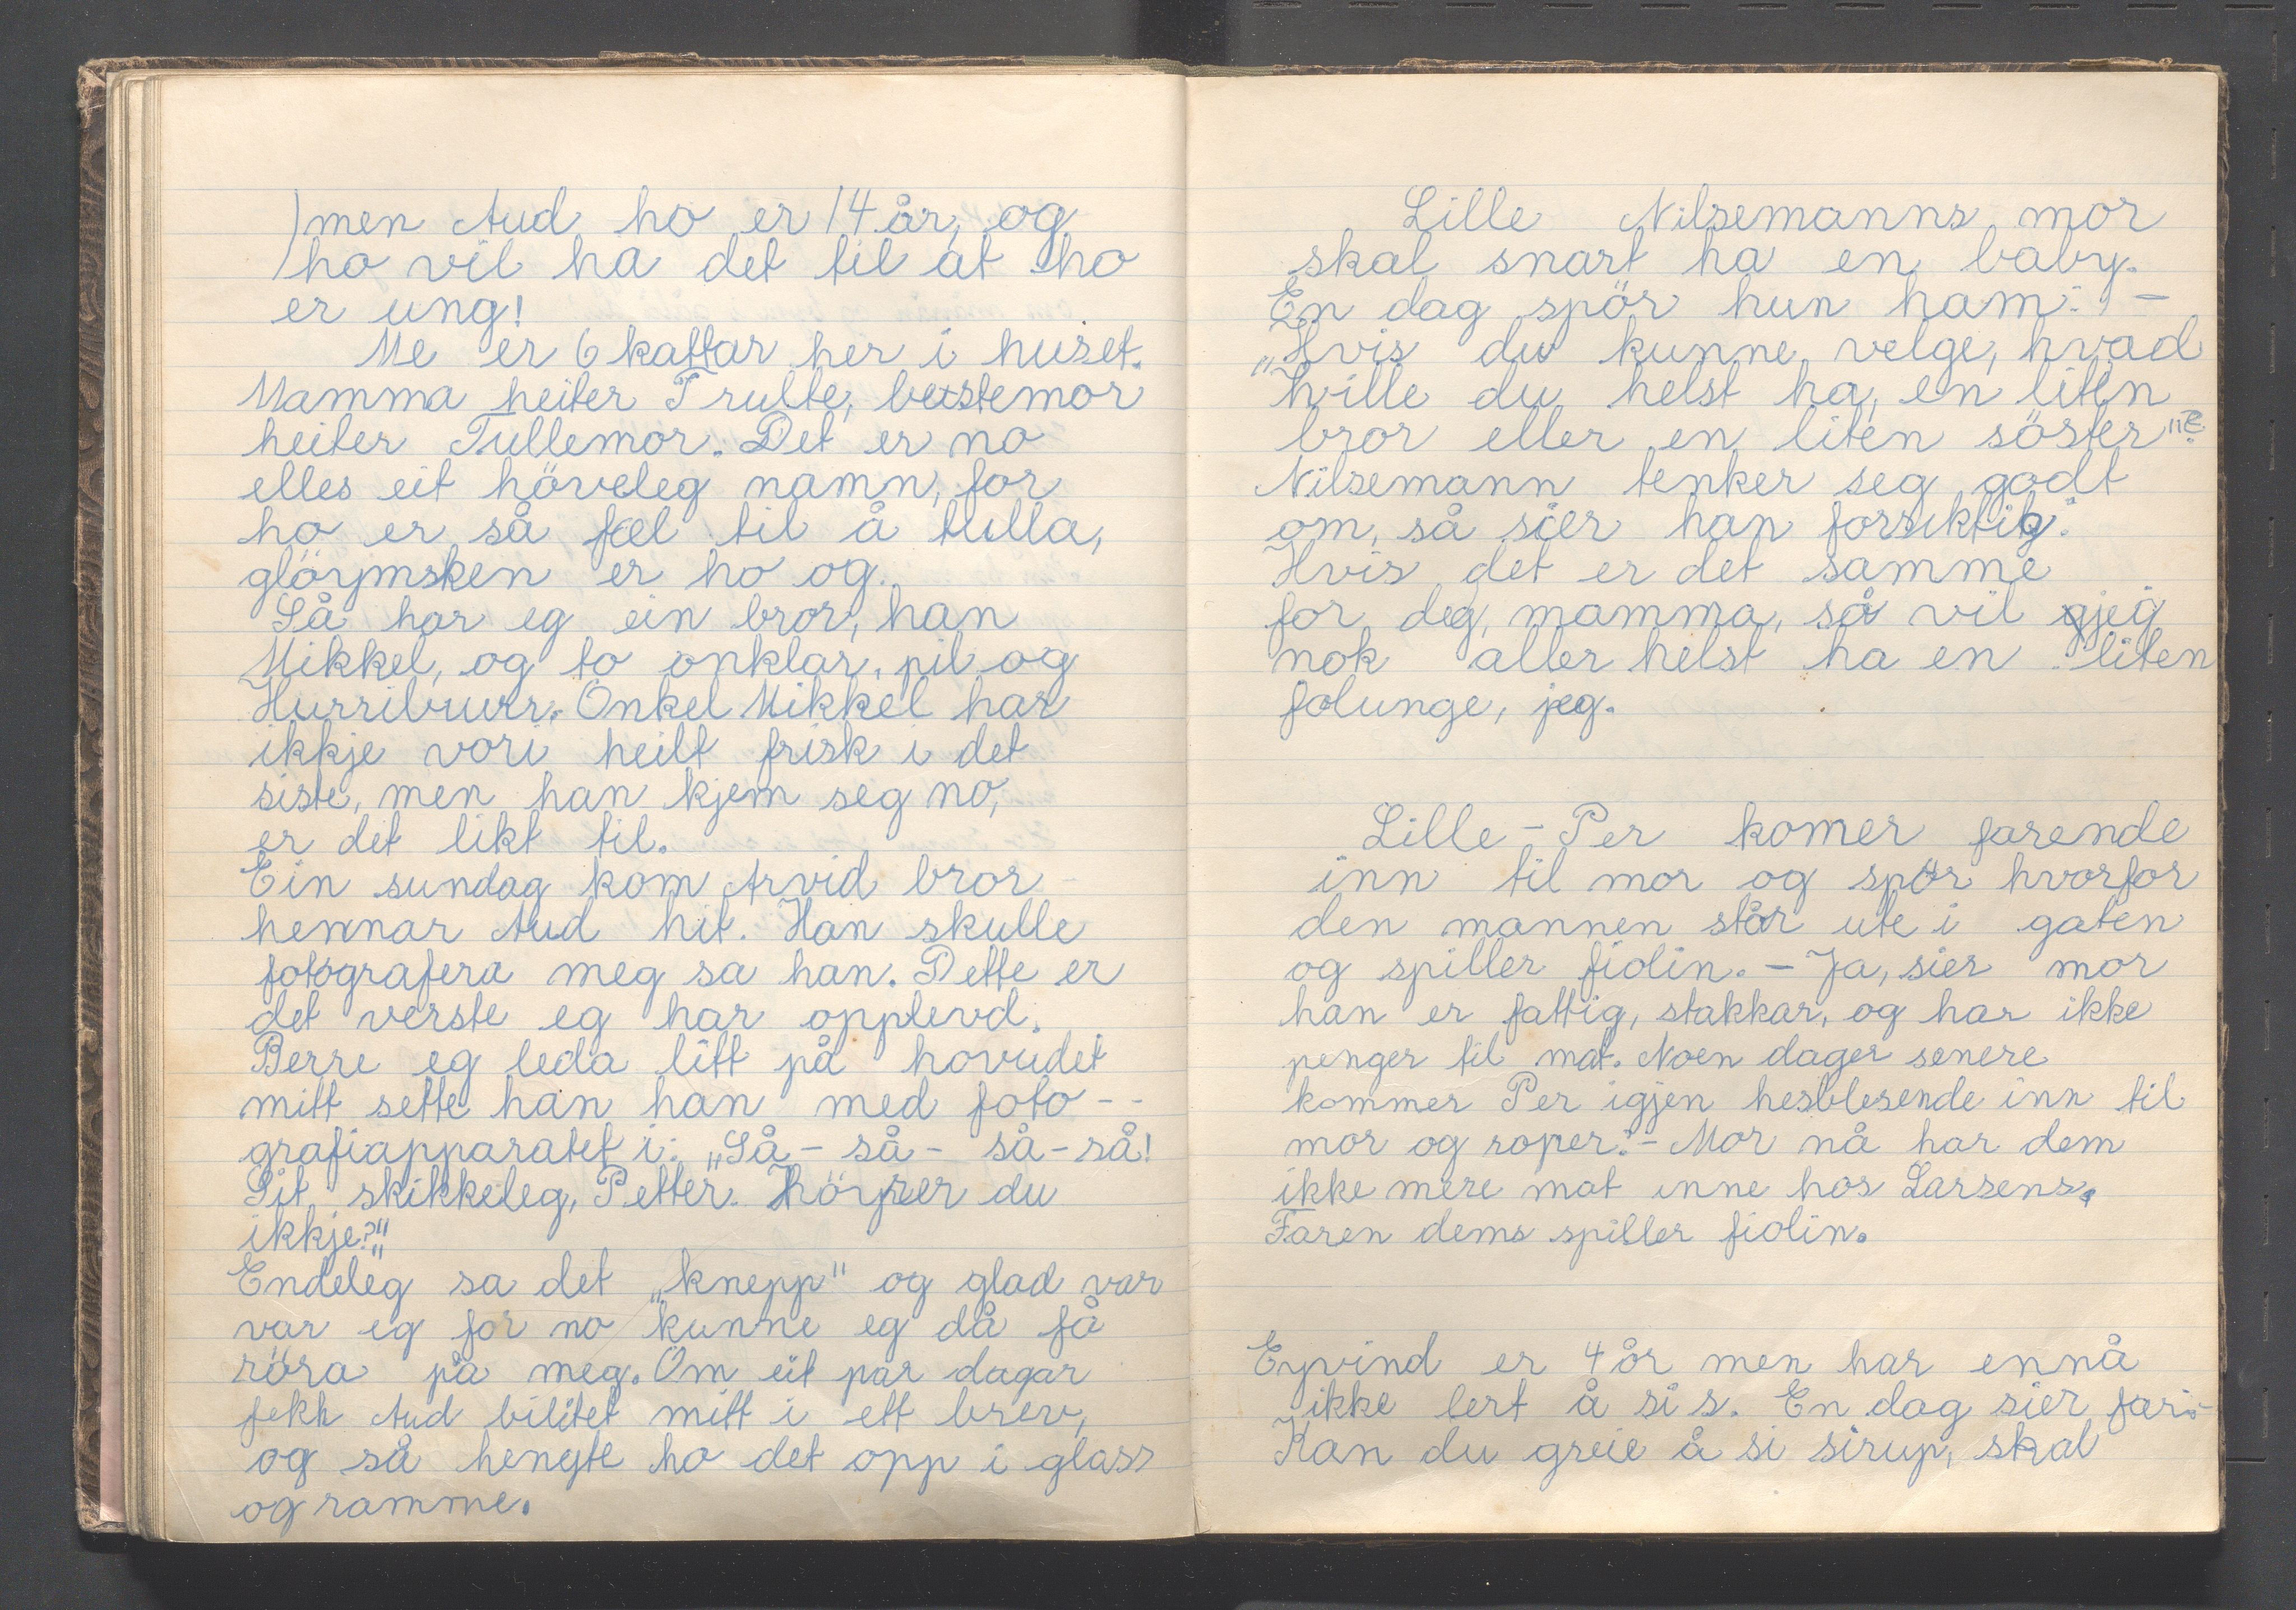 men Aud ho er 14 år, og
ho vil ha det til at ho
er ung!
Me er 6 kattar her i huset.
Mamma heiter Trulte, bestemor
heiter Tullemor. Det er no
elles eit höveleg namn, for
ho er så fæl til å tulla,
glöymsken er ho og.
Så har eg ein bror, han
Mikkel, og to onklar, pil og
Hurriburr. Onkel Mikkel har
ikkje vori heilt frisk i det
siste, men han kjem seg no,
er det likt til.
Ein sundag kom Arvid bror
hennar Aud hit. Han skulle
fotografera meg sa han. Dette er
det verste eg har opplevd.
Berre eg leda litt på hovudet
mitt sette han han med foto-
grafiapparatet i: „Så - så - så - så!
Sit skikkeleg, Petter. Höyrer du
ikkje?"
Endeleg sa det „knepp" og glad var
var eg for no kunne eg då få
röra på meg. Om eit par dagar
fekk Aud biletet mitt i ett brev,
og så hengte ho det opp i glass
og ramme.
Lille Nilsemanns mor
skal snart ha en baby.
En dag spör hun ham: -
„Hvis du kunne velge, hvad
ville du helst ha, en liten
bror eller en liten söster"?
Nilsemann tenker seg godt
om, så sier han forsiktig:
Hvis det er det samme
for deg, mamma, så vil jeg
nok aller helst ha en liten
folunge, jeg.
Lille-Per komer farende
inn til mor og spör hvorfor
den mannen står ute i gaten
og spiller fiolin. - Ja, sier mor
han er fattig, stakkar, og har ikke
penger til mat. Noen dager senere
kommer Per igjen hesblesende inn til
mor og roper: - Mor nå har dem
ikke mere mat inne hos Larsens.
Faren dems spiller fiolin.
Eyvind er 4 år men har ennå
ikke lert å si s. En dag sier far: -
Kan du greie å si sirup, skal